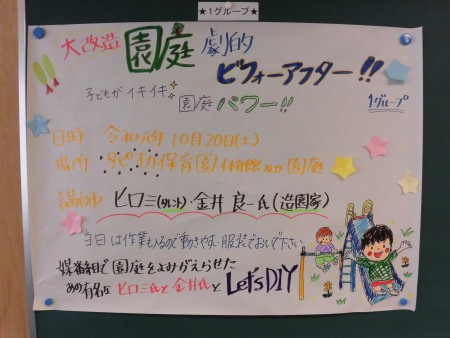 ★1グループ★
大改造 園庭 劇的
ビフォーアフター!!
子どもがイキイキ
園庭パワー!! 1グループ
日時 令和元年10月20日(土)
場所:タピオカ保育園 体育館及び園庭
講師 ヒロミ(タレント)・金井良一氏(造園家)
当日は作業もるので動きやすい服装でおいで下さい
某番組で園庭をよみがえらせた
あの有名な ヒロミ氏と金井氏と Let's DIY